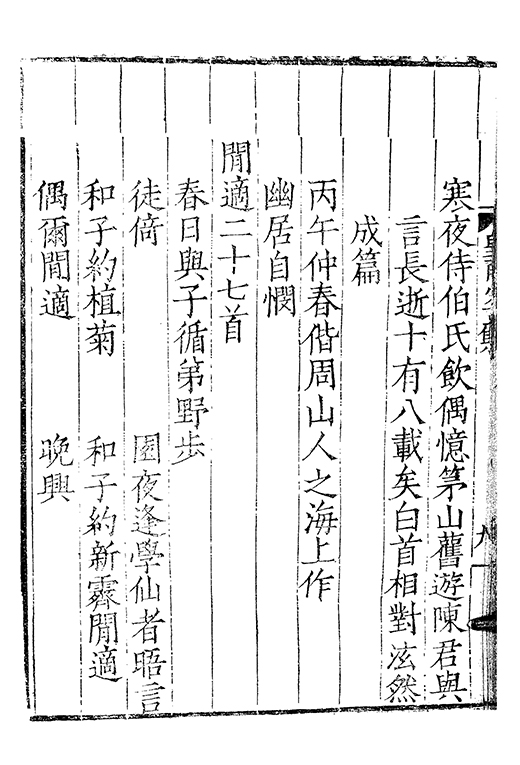 寒夜侍伯氏飲偶憶茅山舊遊陳君與
言長逝十有八載矣白首相對泫然
成篇
丙午仲春偕周山人之海上作
幽居自憫
閒適二十七首
春日與子循第野步
徒倚 園夜逢學仙者晤言
和子約植菊 和子約新霽閒適
偶爾閒適 晚興